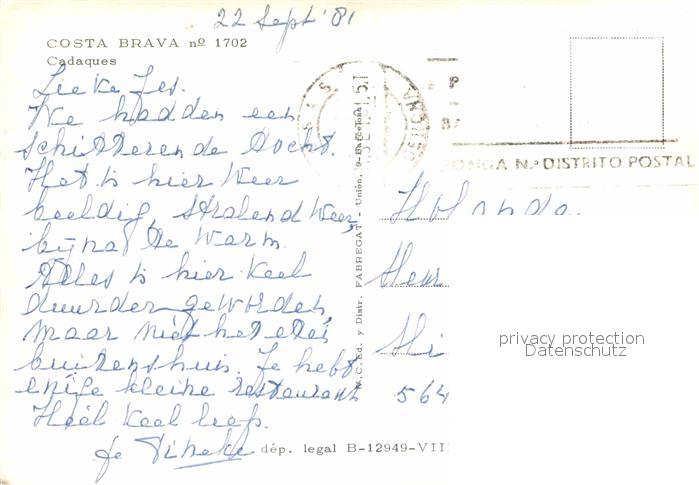 22 Sept '81
COSTA BRAVA nº 1702
Cadaques
Lieve Jes.
We hadden een
schitterende tocht.
Het is hier weer
beeldig, stralend weer,
bijna te warm.
Alles is hier veel
duurder geworden,
maar niet het eten
buitenshuis. Je hebt
enige kleine restaurant
Heel veel liefs.
je Tineke
dép. legal B-12949-VII
.C. Ed. y Distr. FABREGAT - Unión, 9-Barcelona
PONGA N.º DISTRITO POSTAL
Holanda.
Heur
Hi
564
privacy protection
Datenschutz